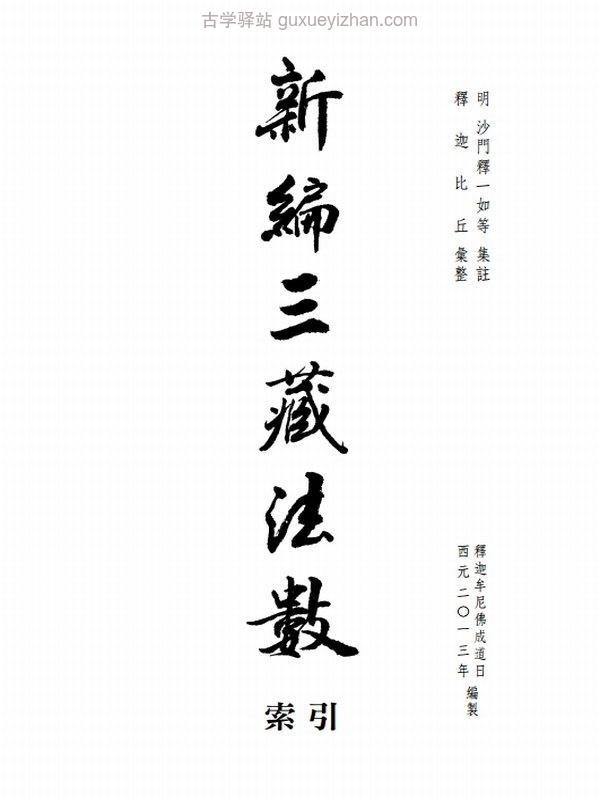 古学驿站 guxueyizhan.com
明 沙門釋一如等 集註
釋迦比丘 彙整
新編三藏法數
索引
釋迦牟尼佛成道日
西元二〇一三年
編製